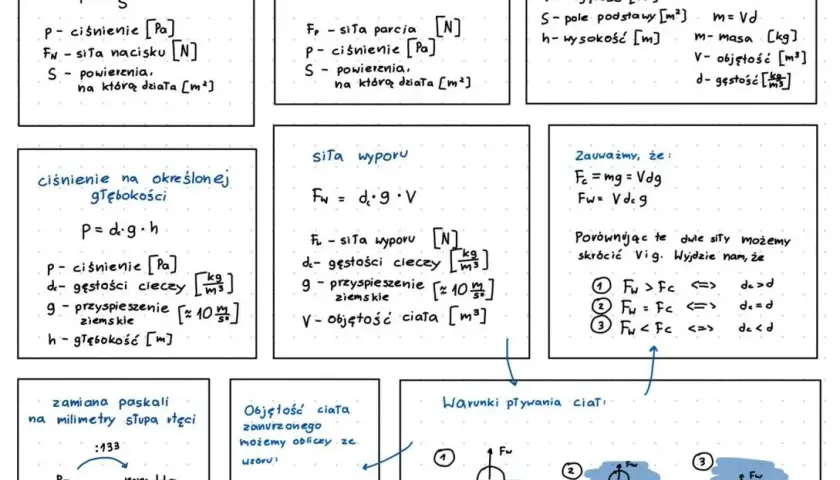 S
p - ciśnienie [Pa]
FN - siła nacisku [N]
S - powierznia,
na którą działa [m²]
Fp - siła parcia [N]
p - ciśnienie [Pa]
S - powierznia,
na którą działa [m²]
S - pole podstawy [m²]
h - wysokość [m]
m = Vd
m - masa [kg]
V - objętość [m³]
d - gęstość [kg/m³]
ciśnienie na określonej
głębokości
p = d · g · h
p - ciśnienie [Pa]
dc - gęstości cieczy [kg/m³]
g - przyspieszenie [≈ 10 m/s²]
ziemskie
h - głębokość [m]
siła wyporu
Fw = dc · g · V
- siła wyporu [N]
dc - gęstości cieczy [kg/m³]
g - przyspieszenie [≈ 10 m/s²]
ziemskie
V - objętość ciała [m³]
Zauważmy, że:
Fc = mg = Vdg
Fw = Vdc g
Porównując te dwie siły możemy
skrócić V i g. Wyjdzie nam, że
1 Fw > Fc <=> dc > d
2 Fw = Fc <=> dc = d
3 Fw < Fc <=> dc < d
zamiana paskali
na milimetry słupa rtęci
:133
Objętość ciała
zanurzonego
możemy obliczyć ze
wzoru:
Warunki pływania ciał:
1 Fw
2 Fw
3 Fw